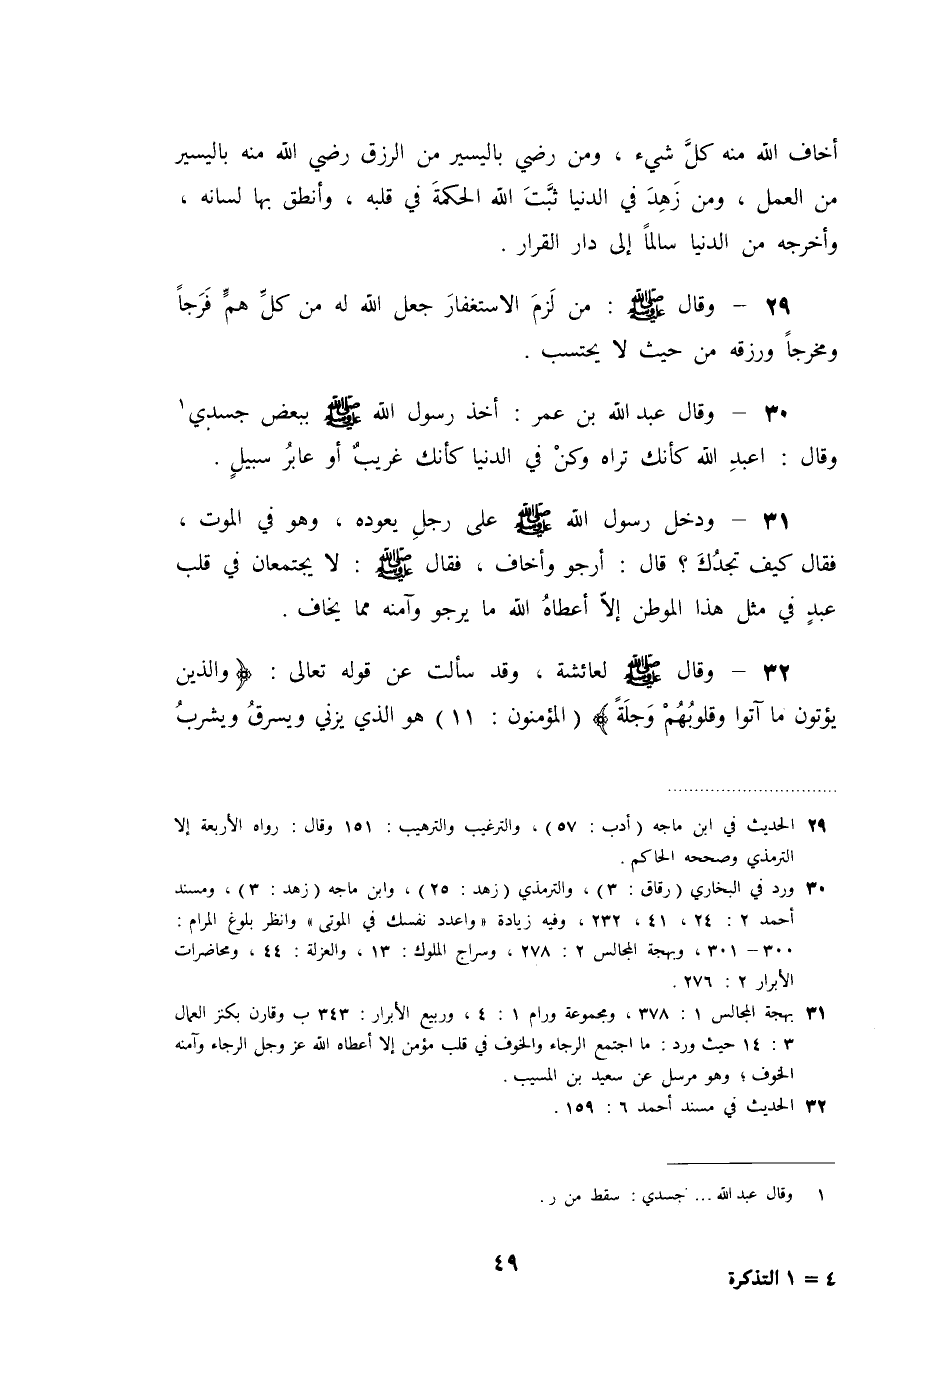 أخاف الله منه كلَّ شيء ، ومن رضي باليسير من الرزق رضي الله منه باليسير
من العمل ، ومن زَهِدَ في الدنيا ثبَّتَ الله الحكمةَ في قلبه ، وأنطق بها لسانه ،
وأخرجه من الدنيا سالماً إلى دار القرار .
٢٩ – وقال ﷺ : من لَزمَ الاستغفارَ جعل الله له من كلِّ همٍّ فَرَجاً
ومخرجاً ورزقه من حيث لا يحتسب .
٣٠ – وقال عبد الله بن عمر : أخذ رسول الله ﷺ ببعض جسدي١
وقال : اعبدِ الله كأنك تراه وكنْ في الدنيا كأنك غريبٌ أو عابرُ سبيلٍ .
٣١ – ودخل رسول الله ﷺ على رجلٍ يعوده ، وهو في الموت ،
فقال كيف تجدُكَ ؟ قال : أرجو وأخاف ، فقال ﷺ : لا يجتمعان في قلب
عبدٍ في مثل هذا الموطن إلاّ أعطاهُ الله ما يرجو وآمنه مما يخاف .
٣٢ – وقال ﷺ لعائشة ، وقد سألت عن قوله تعالى : ﴿ والذين
يؤتون ما آتوا وقلوبُهُمْ وَجلَةً ﴾ ( المؤمنون : ١١ ) هو الذي يزني ويسرقُ ويشربُ
٢٩ الحديث في ابن ماجه ( أدب : ٥٧ ) ، والترغيب والترهيب : ١٥١ وقال : رواه الأربعة إلا
الترمذي وصححه الحاكم .
٣٠ ورد في البخاري ( رقاق : ٣ ) ، والترمذي ( زهد : ٢٥ ) ، وابن ماجه ( زهد : ٣ ) ، ومسند
أحمد ٢ : ٢٤ ، ٤١ ، ٢٣٢ ، وفيه زيادة « واعدد نفسك في الموتى » وانظر بلوغ المرام :
٣٠٠ – ٣٠١ ، وبهجة المجالس ٢ : ٢٧٨ ، وسراج الملوك : ١٣ ، والعزلة : ٤٤ ، ومحاضرات
الأبرار ٢ : ٢٧٦ .
٣١ بهجة المجالس ١ : ٣٧٨ ، ومجموعة ورام ١ : ٤ ، وربيع الأبرار : ٣٤٣ ب وقارن بكنز العمال
٣ : ١٤ حيث ورد : ما اجتمع الرجاء والخوف في قلب مؤمن إلا أعطاه الله عز وجل الرجاء وآمنه
الخوف ؛ وهو مرسل عن سعيد بن المسيب .
٣٢ الحديث في مسند أحمد ٦ : ١٥٩ .
١ وقال عبد الله ... جسدي : سقط من ر .
٤٩
٤ = ١ التذكرة